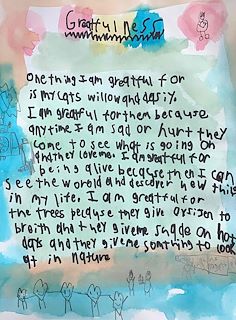 Greatfulness
One thing I am greatful for
is my cats willow and dasiy.
I am greatful for them because
any time I am sad or hurt they
come to see what is going on
and they love me. I am greatful for
being alive because then I can
see the world and descover new things
in my life. I am greatful for
the trees pecause they give oxsijen to
breith and they give me shade on hot
days and they give me somthing to look
at in nature